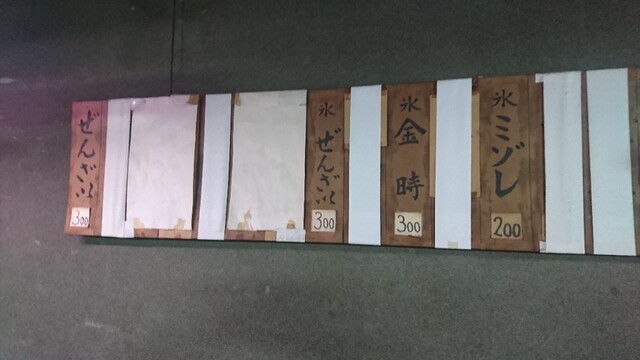 ぜんざい
300
氷
ぜんざい
300
氷
金時
300
氷
ミゾレ
200